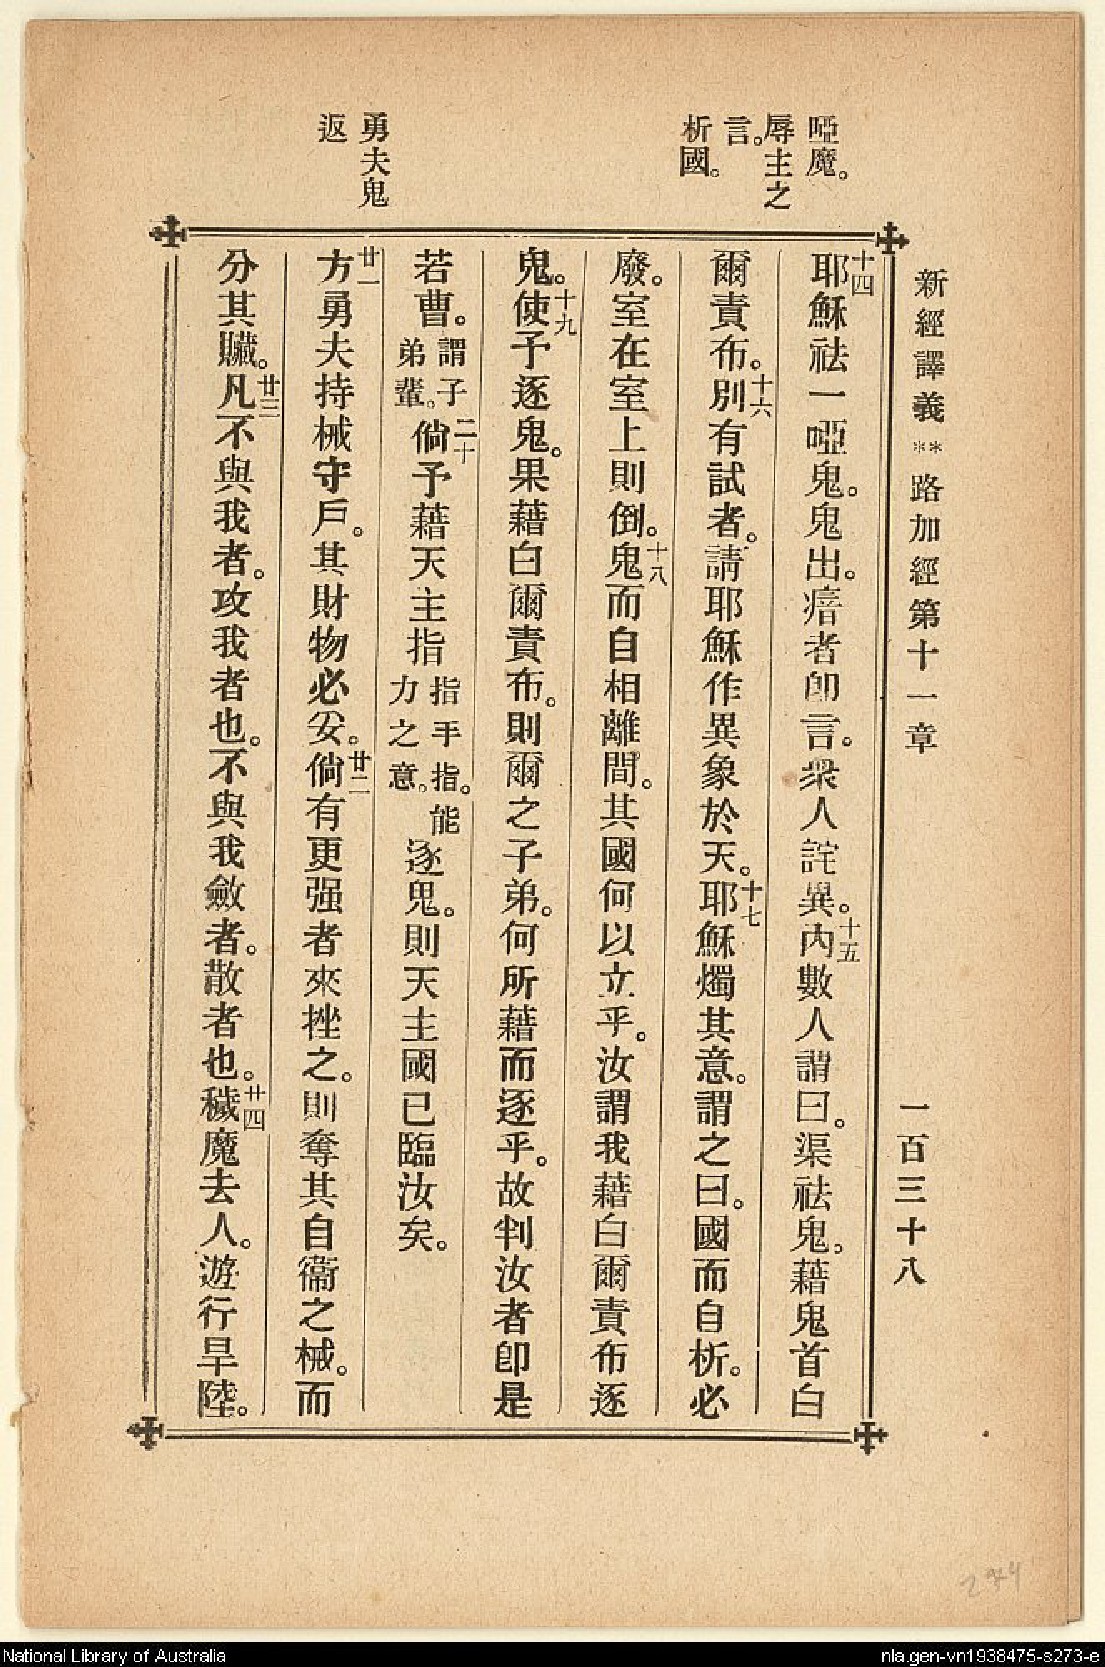 新經譯義**路加經第十一章 一百三十八
啞魔。
辱主之
言。
析國。
勇夫鬼
返
十四耶穌祛一啞鬼。鬼出。瘖者卽言。衆人詫異。十五內數人謂曰。渠祛鬼。藉鬼首白
爾責布。十六別有試者。請耶穌作異象於天。十七耶穌燭其意。謂之曰。國而自析。必
廢。室在室上則倒。十八鬼而自相離間。其國何以立乎。汝謂我藉白爾責布逐
鬼。十九使予逐鬼。果藉白爾責布。則爾之子弟。何所藉而逐乎。故判汝者卽是
若曹。謂子弟輩。二十倘予藉天主指指手指。能力之意。逐鬼。則天主國已臨汝矣。
廿一方勇夫持械守戶。其財物必安。廿二倘有更强者來挫之。則奪其自衞之械。而
分其贓。廿三凡不與我者。攻我者也。不與我斂者。散者也。廿四穢魔去人。遊行旱陸。
274
National Library of Australia
nla.gen-vn1938475-s273-e